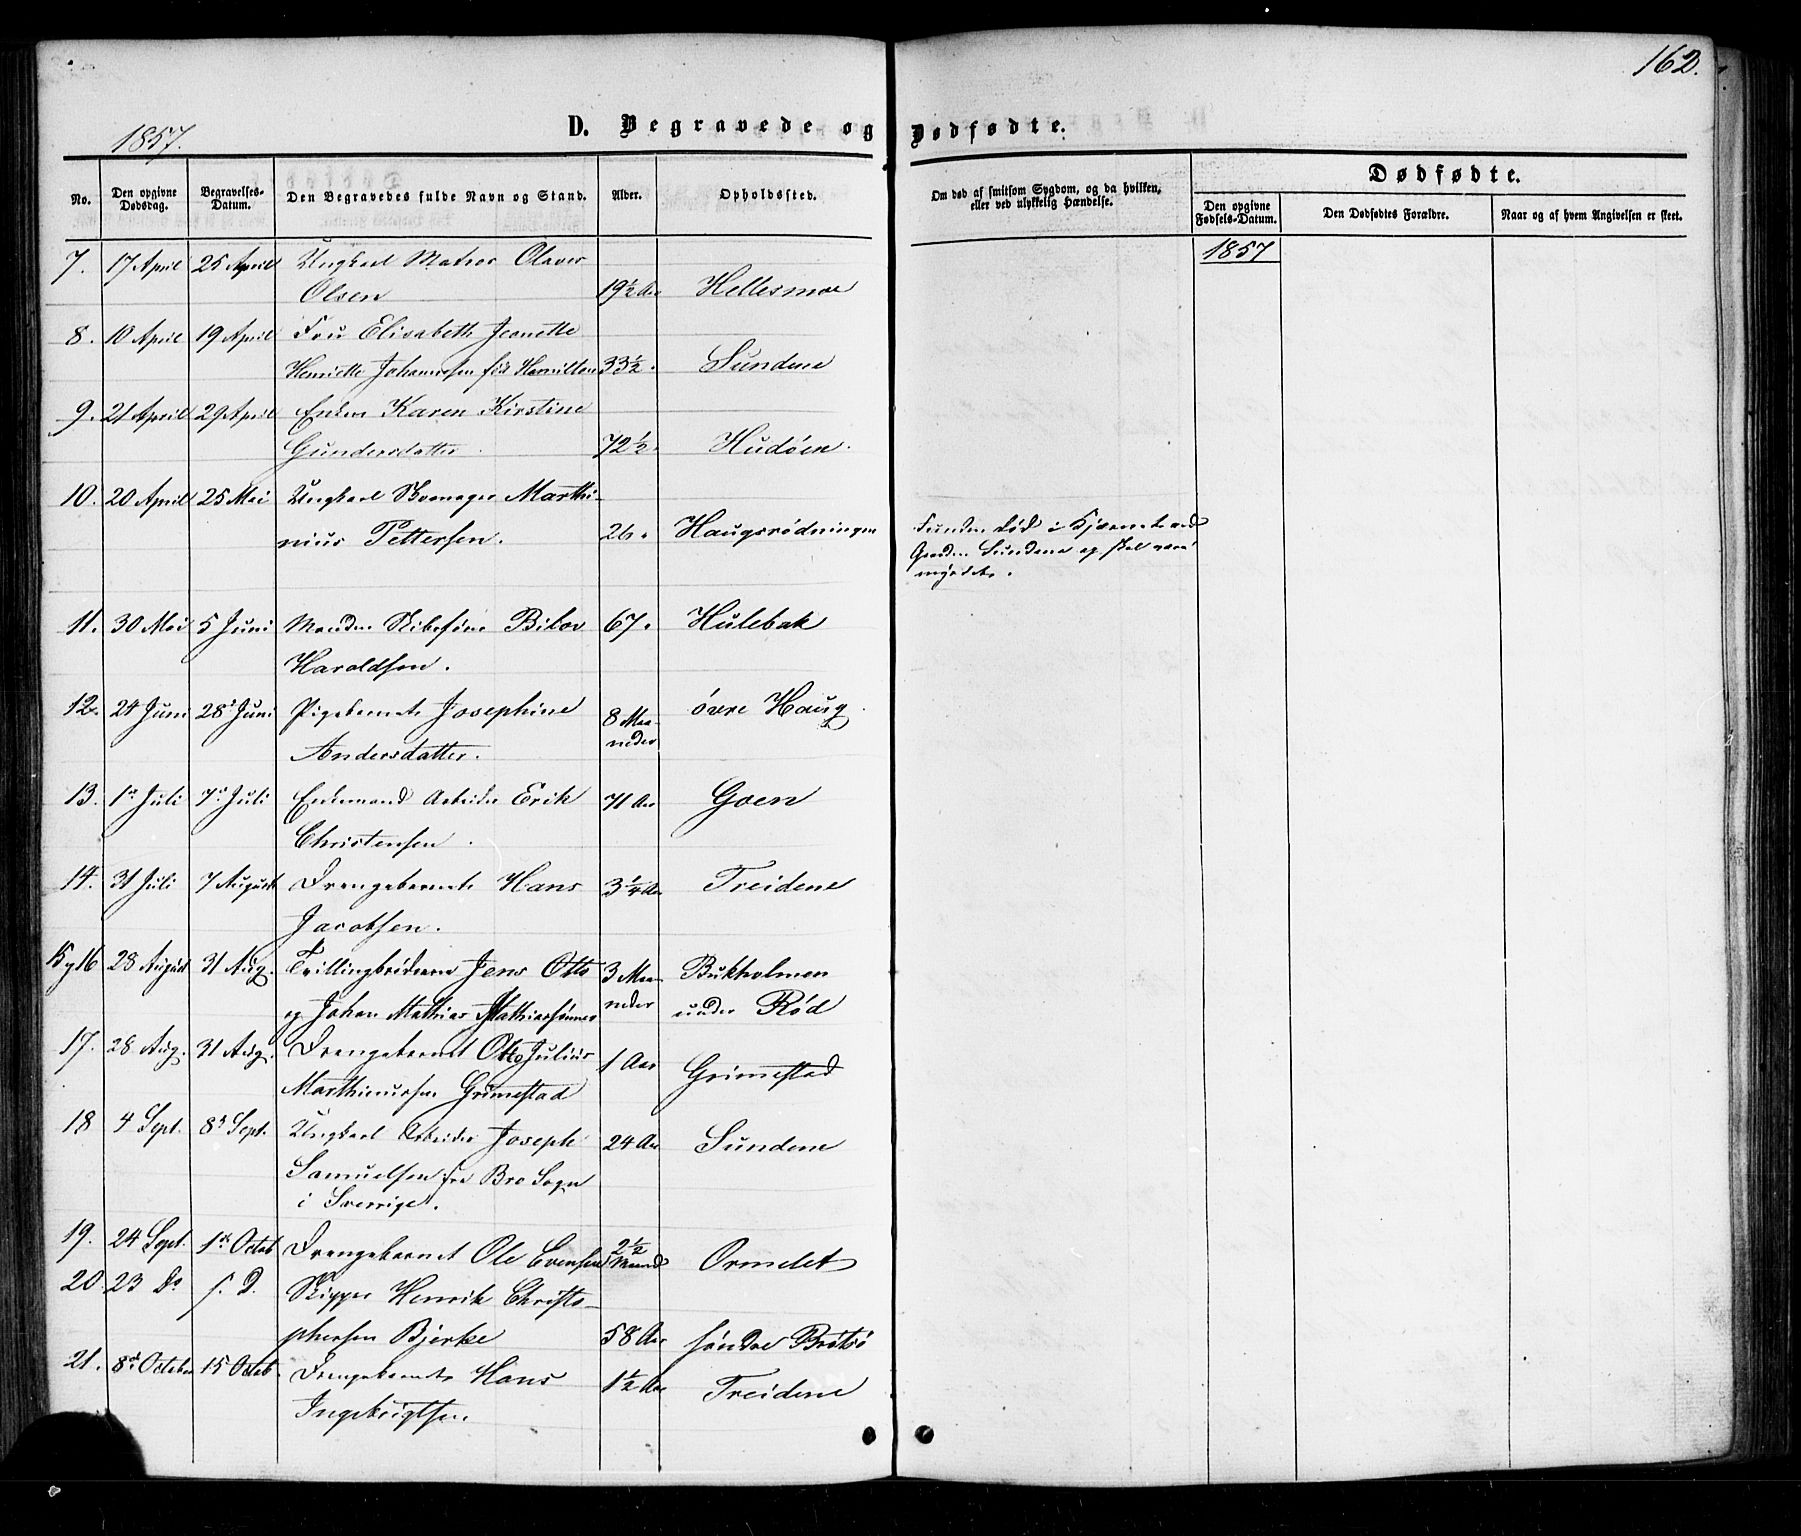 162.
D. Begravede og Dødfødte.
1857.
No.
Den opgivne Dødsdag.
Begravelses-Datum.
Den Begravedes fulde Navn og Stand.
Alder.
Opholdssted.
Om død af smitsom Sygdom, og da hvilken, eller ved ulykkelig Hændelse.
Dødfødte.
Den opgivne Fødsels-Datum.
Den Dødfødtes Forældre.
Naar og af hvem Angivelsen er skeet.
1857
7. 17 April 25 April Ungkarl Matros Olaves
Olsen 19½ Aar Hellesmoe
8. 10 April 19 April Fru Elisabeth Jeanette
Henriette Johannesen fød Hamilton 33½ " Sundene
9. 21 April 29 April Enken Karen Kirstine
Gundersdatter. 72½ " Hudøen.
10. 20 April 25 Mai Ungkarl Marthi-
nius Pettersen. 26 " Haugsrødningen
Funden død i Kjærnet ved
Gaarden Sundene og skal være
myrdet.
11. 30 Mai 5 Juni Manden Bilov 67 " Hulebak
Haroldsen.
12. 24 Juni 28de Juni Pigebarnet Josephine 8 Maa- øvre Haug.
Andersdatter. neder
13. 1st Juli 7de Juli Enkemand Arbeider Erik 71 Aar Goen
Christensen.
14. 31 Juli 7 August Drengebarnet Hans 3¼ Aar Treidene
Jacobsen.
15 og 16 28 August 31 Aug. Tvillingbrødrene Jens Otto 3 Maa- Bukholmen
og Johan Mathias Mathiassønner neder under Rød
17. 28 Aug. 31 Aug. Drengebarnet Otto Julius 1 Aar Grimestad
Marthinussen Grimestad
18 4 Sept. 8de Sept. Ungkarl Arbeider Joseph 24 Aar Sundene
Samuelsen fra Bro Sogn
i Sverrige.
19. 24 Sept. 1st Octob Drengebarnet Ole Evensen 2½ Maaned Ormelet
20. 23 Do s. D. Skipper Henrik Christo-
phersen Bjerke 58 Aar søndre Brotsø
21. 8de October 15 Octob. Drengebarnet Hans 1½ Aar Treidene
Ingebrigtsen